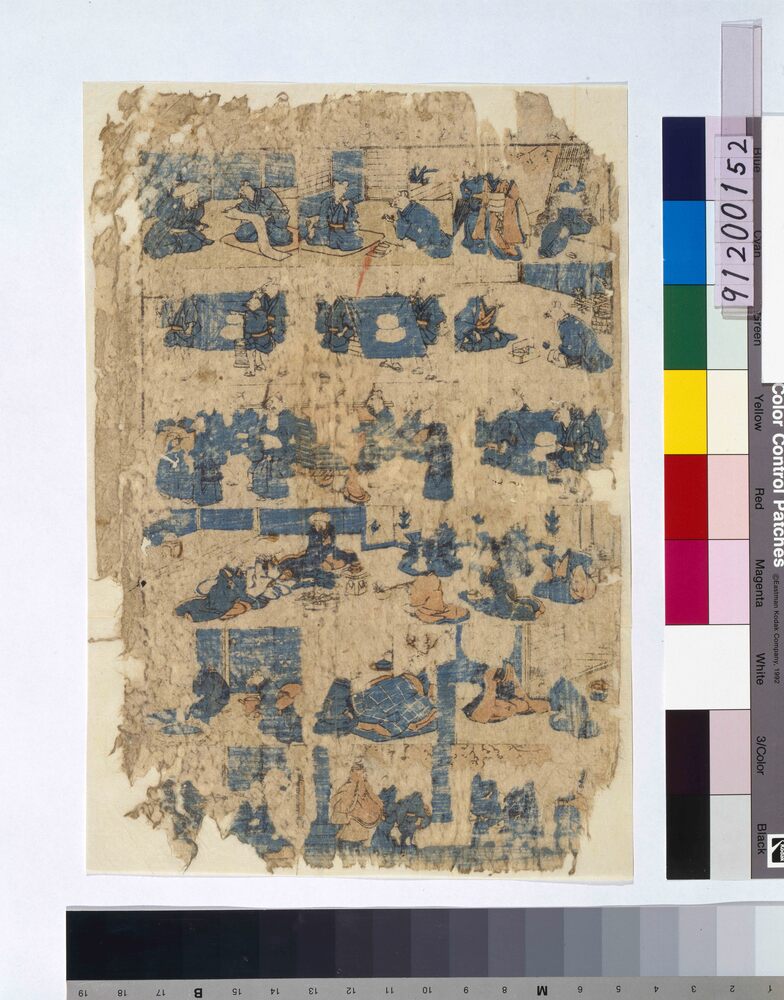 91200152
Color Control Patches
©Eastman Kodak Company, 1992
Blue
Cyan
Green
Yellow
Red
Magenta
White
3/Color
Black
19 18 17 B 15 14 13 12 11 10 9 8 M 6 5 4 3 2 1